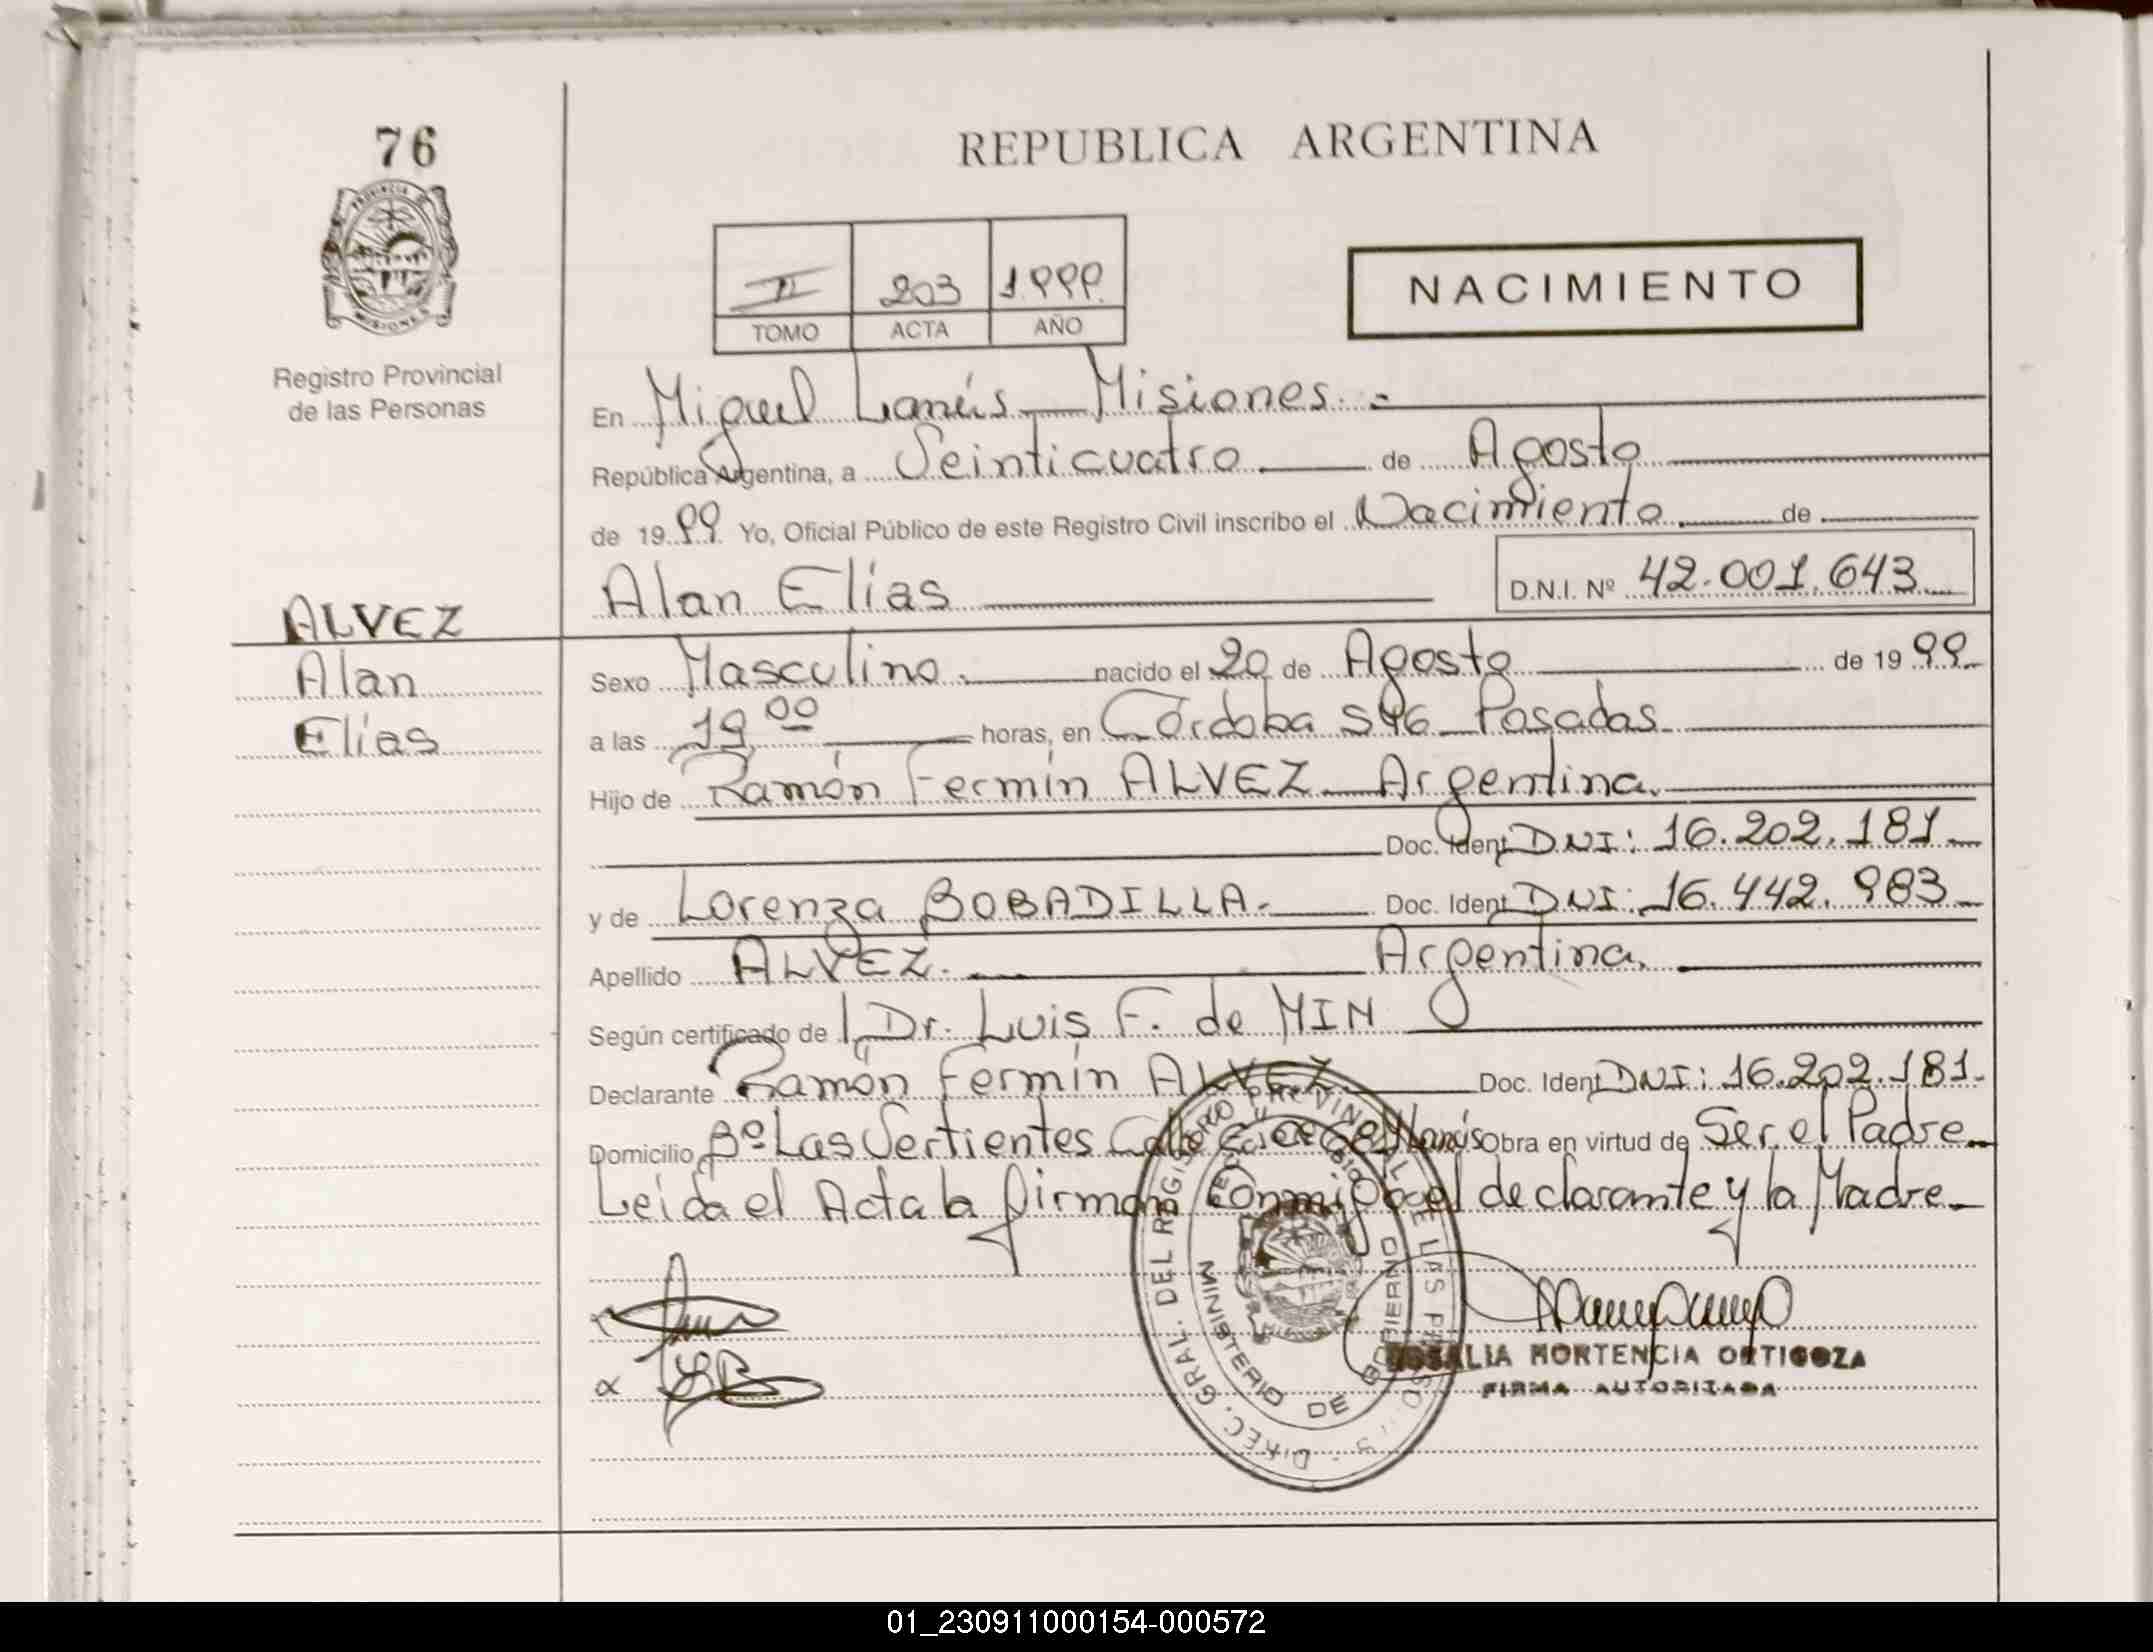 76
PROVINCIA DE
MISIONES
Registro Provincial
de las Personas
ALVEZ
Alan
Elías
REPUBLICA ARGENTINA
II 203 1.999
TOMO ACTA AÑO
NACIMIENTO
En Miguel Lanús Misiones.-
República Argentina, a Veinticuatro de Agosto
de 1999 Yo, Oficial Público de este Registro Civil inscribo el Nacimiento de
Alan Elías D.N.I. Nº 42.001.643
Sexo Masculino. nacido el 20 de Agosto de 1999
a las 19 00 horas, en Córdoba 546 Posadas
Hijo de Ramón Fermín ALVEZ Argentina.
Doc. Ident DNI: 16.202.181
y de Lorenza BOBADILLA.- Doc. Ident DNI: 16.442.983
Apellido ALVEZ. Argentina.
Según certificado de Dr. Luis F. de MIN
Declarante Ramón Fermín ALVEZ. Doc. Ident DNI: 16.202.181.
Domicilio Bº Las Vertientes Calle Lanús Obra en virtud de Ser el Padre
Leida el Acta la firman Conmigo el declarante y la Madre
DIREC. GRAL. DEL REGISTRO PROVINCIAL DE LAS PERSONAS
MINISTERIO DE GOBIERNO
ROSALIA HORTENCIA ORTIGOZA
FIRMA AUTORIZADA
01_230911000154-000572